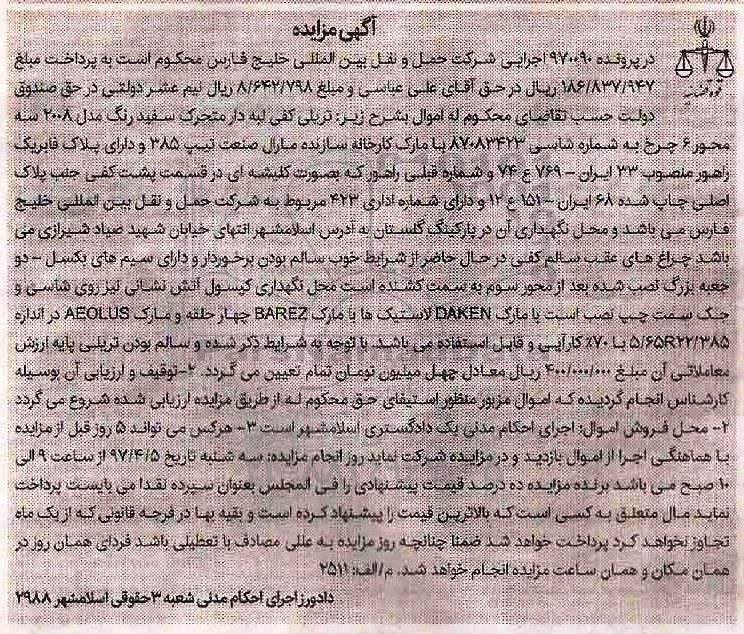 آگهی مزایده
در پرونده ۹۷۰۰۹۰ اجرایی شرکت حمل و نقل بین المللی خلیج فارس محکوم است به پرداخت مبلغ
۱۸۶/۸۳۷/۹۴۷ ریال در حق آقای علی عباسی و مبلغ ۸/۶۴۲/۷۹۸ ریال نیم عشر دولتی در حق صندوق
دولت حسب تقاضای محکوم له اموال بشرح زیر: تریلی کفی لبه دار متحرک سفید رنگ مدل ۲۰۰۸ سه
محور ۶ چرخ به شماره شاسی ۸۷۰۸۳۴۲۳ با مارک کارخانه سازنده مارال صنعت تیپ ۳۸۵ و دارای پلاک فابریک
راهور منصوب ۳۳ ایران – ۷۶۹ ع ۷۴ و شماره قبلی راهور که بصورت کلیشه ای در قسمت پشت کفی جنب پلاک
اصلی چاپ شده ۶۸ ایران – ۱۵۱ ع ۱۲ و دارای شماره اداری ۴۲۳ مربوط به شرکت حمل و نقل بین المللی خلیج
فارس می باشد و محل نگهداری آن در پارکینگ گلستان به آدرس اسلامشهر انتهای خیابان شهید صیاد شیرازی می
باشد چراغ های عقب سالم کفی در حال حاضر از شرایط خوب سالم بودن برخوردار و دارای سیم های بکسل – دو
جعبه بزرگ نصب شده بعد از محور سوم به سمت کشنده است محل نگهداری کپسول آتش نشانی نیز روی شاسی و
جک سمت چپ نصب است با مارک DAKEN لاستیک ها با مارک BAREZ چهار حلقه و مارک AEOLUS در اندازه
۵/۶۵R۲۲/۳۸۵ با ۷۰٪ کارآیی و قابل استفاده می باشد. با توجه به شرایط ذکر شده و سالم بودن تریلی پایه ارزش
معاملاتی آن مبلغ ۴۰۰/۰۰۰/۰۰۰ ریال معادل چهل میلیون تومان تمام تعیین می گردد. ۲–توقیف و ارزیابی آن بوسیله
کارشناس انجام گردیده که اموال مزبور منظور استیفای حق محکوم له از طریق مزایده ارزیابی شده شروع می گردد
۲– محل فروش اموال: اجرای احکام مدنی یک دادگستری اسلامشهر است ۳– هرکس می تواند ۵ روز قبل از مزایده
با هماهنگی اجرا از اموال بازدید و در مزایده شرکت نماید روز انجام مزایده: سه شنبه تاریخ ۹۷/۴/۵ از ساعت ۹ الی
۱۰ صبح می باشد برنده مزایده ده درصد قیمت پیشنهادی را فی المجلس بعنوان سپرده نقدا می بایست پرداخت
نماید مال متعلق به کسی است که بالاترین قیمت را پیشنهاد کرده است و بقیه بها در فرجه قانونی که از یک ماه
تجاوز نخواهد کرد پرداخت خواهد شد ضمنا چنانچه روز مزایده به عللی مصادف با تعطیلی باشد فردای همان روز در
همان مکان و همان ساعت مزایده انجام خواهد شد. م/الف: ۲۵۱۱
دادورز اجرای احکام مدنی شعبه ۳ حقوقی اسلامشهر ۲۹۸۸